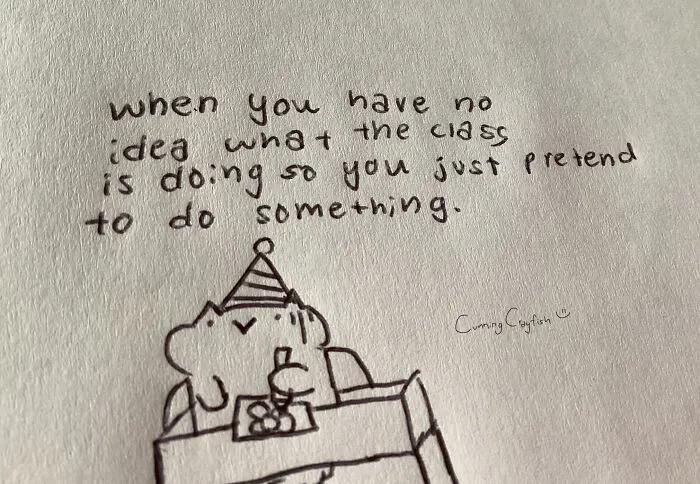 when you have no
idea what the class
is doing so you just pretend
to do something.
Cunning Crayfish